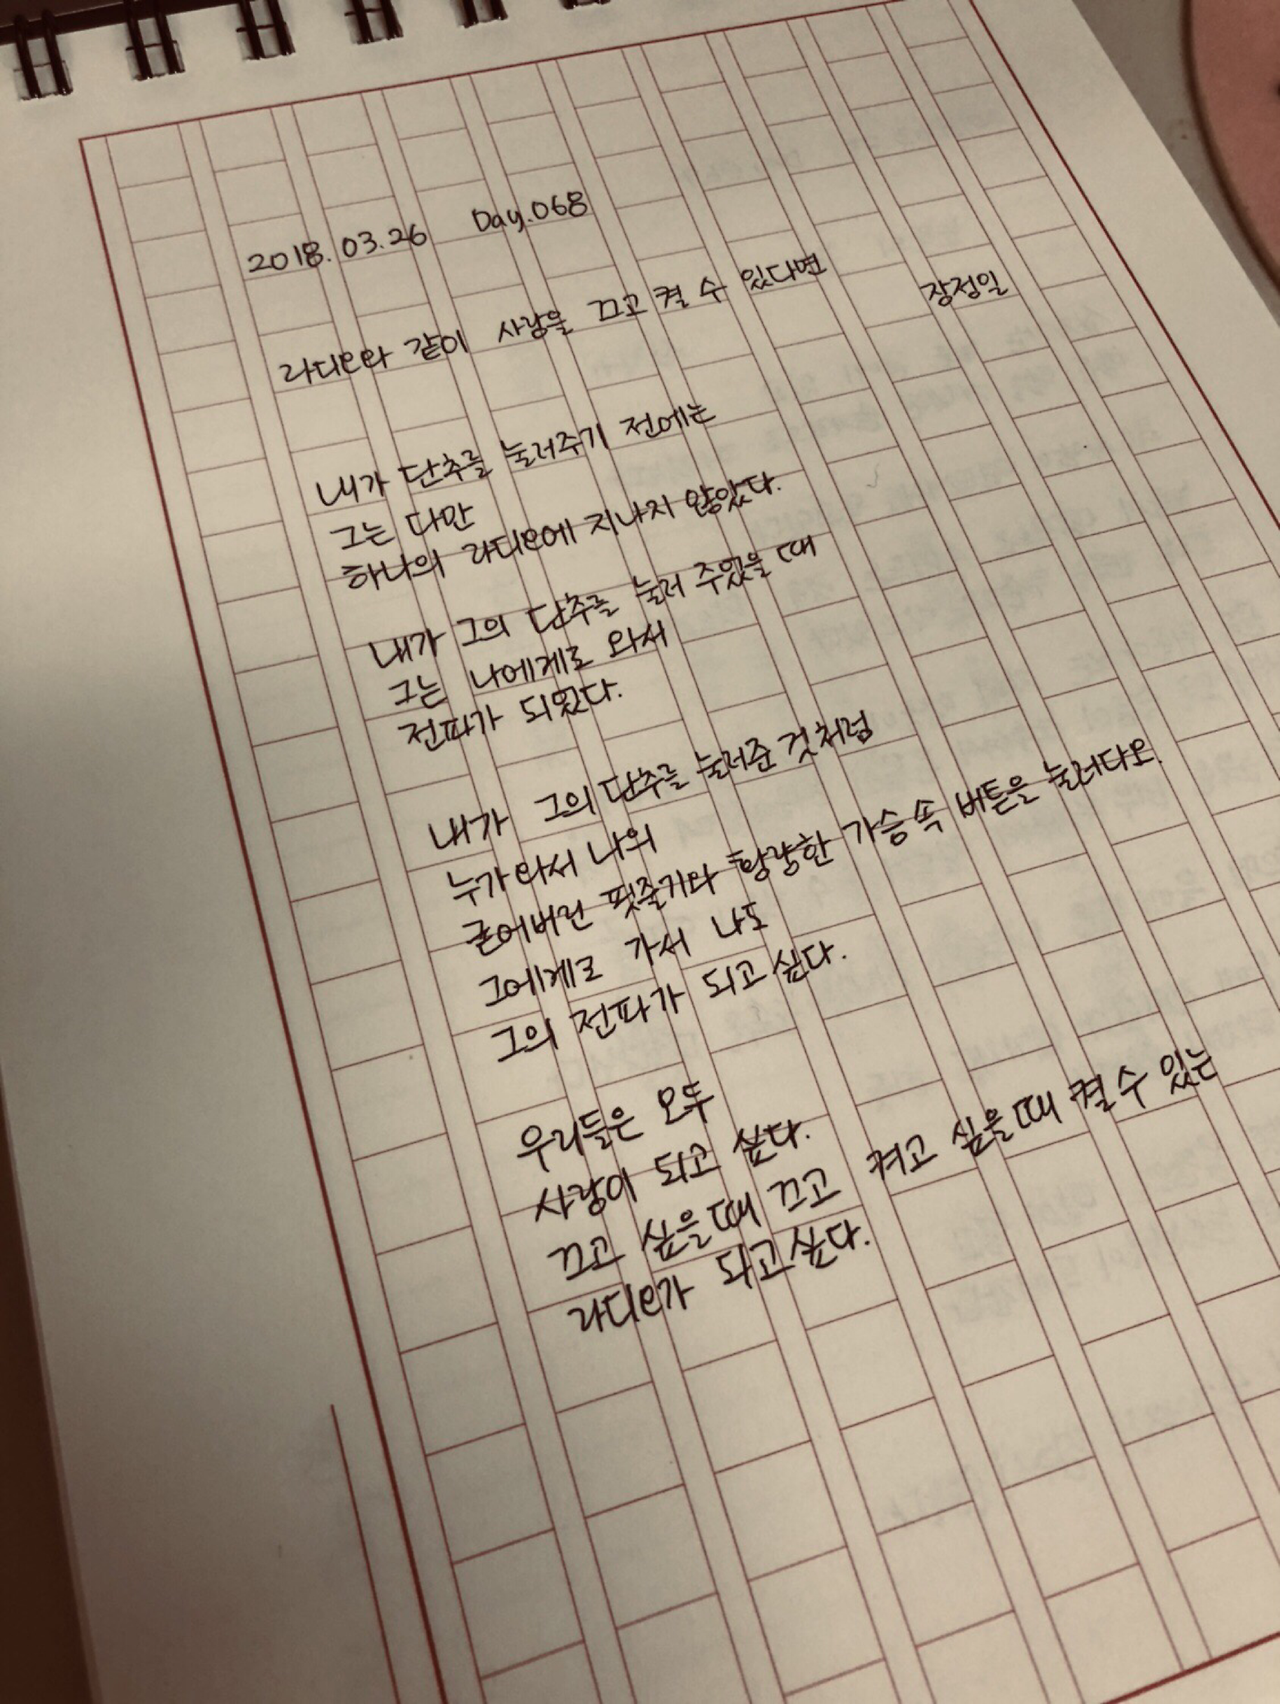 2018.03.26 Day.068
라디오와 같이 사랑을 끄고 켤 수 있다면 장정일
내가 단추를 눌러주기 전에는
그는 다만
하나의 라디오에 지나지 않았다.
내가 그의 단추를 눌러 주었을 때
그는 나에게로 와서
전파가 되었다.
내가 그의 단추를 눌러준 것처럼
누가 와서 나의
굳어버린 핏줄기와 황량한 가슴 속 버튼을 눌러다오.
그에게로 가서 나도
그의 전파가 되고 싶다.
우리들은 모두
사랑이 되고 싶다.
끄고 싶을 때 끄고 켜고 싶을 때 켤 수 있는
라디오가 되고 싶다.